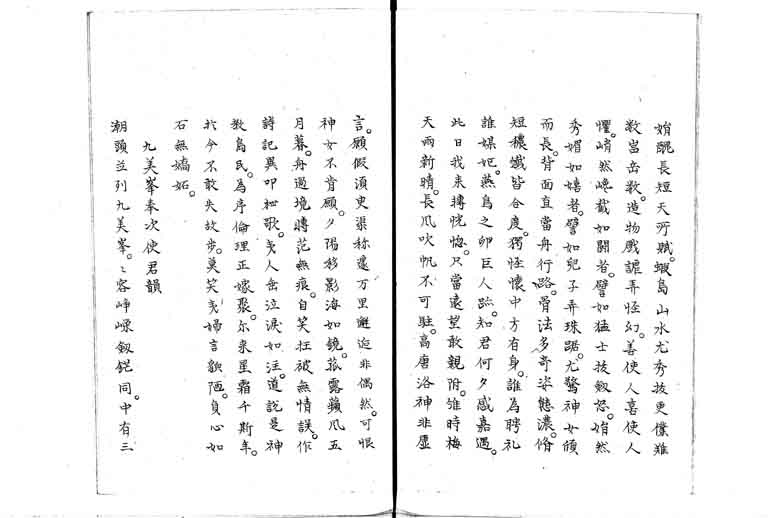 妍醜長短天所賦。蝦島山水尤秀拔更僕難
數。峀岳敎造物戲謔弄怪幻。善使人喜使人
懼。峭然巉截如鬪者。譬如猛士拔劔怒。娟然
秀媚如嬉者。譬如兒子弄珠踞。尤驚神女頎
而長。背面直當舟行路。骨法多奇姿態濃。脩
短穠孅皆合度。獨怪懷中方有身。誰為聘禮
誰媒妁。燕鳥之卵巨人跡。知君何夕感嘉遇。
此日我来轉恍惚。只當遠望敢親附。雖時梅
天雨新晴。長風吹帆不可駐。高唐洛神非虛
言。願假須臾渠称邊万里邂逅非偶然。可恨
神女不肯顧。夕陽移影海如鏡。菰露蘋風五
月暮。舟過境轉茫無痕。自笑枉被無情誤。作
詩記異叩枻歌。夷人密泣淚如注。道說是神
敎島民。為序倫理正嫁聚。尓来星霜千斯年。
於今不敢失故步。莫笑夷婦言貌陋。負心如
石無嬌妬。
九美峯奉次使君韻
潮頭並列九美峯。〻容崢嶸劔鋩同。中有三